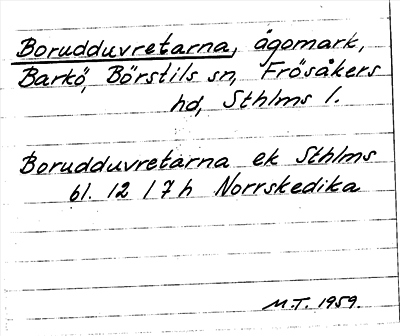 Borudduvretarna, ägomark,
Barkö, Börstils sn, Frösåkers
hd, Sthlms l.
Borudduvretarna ek Sthlms
bl. 12 I 7 h Norrskedika
M.T. 1959.